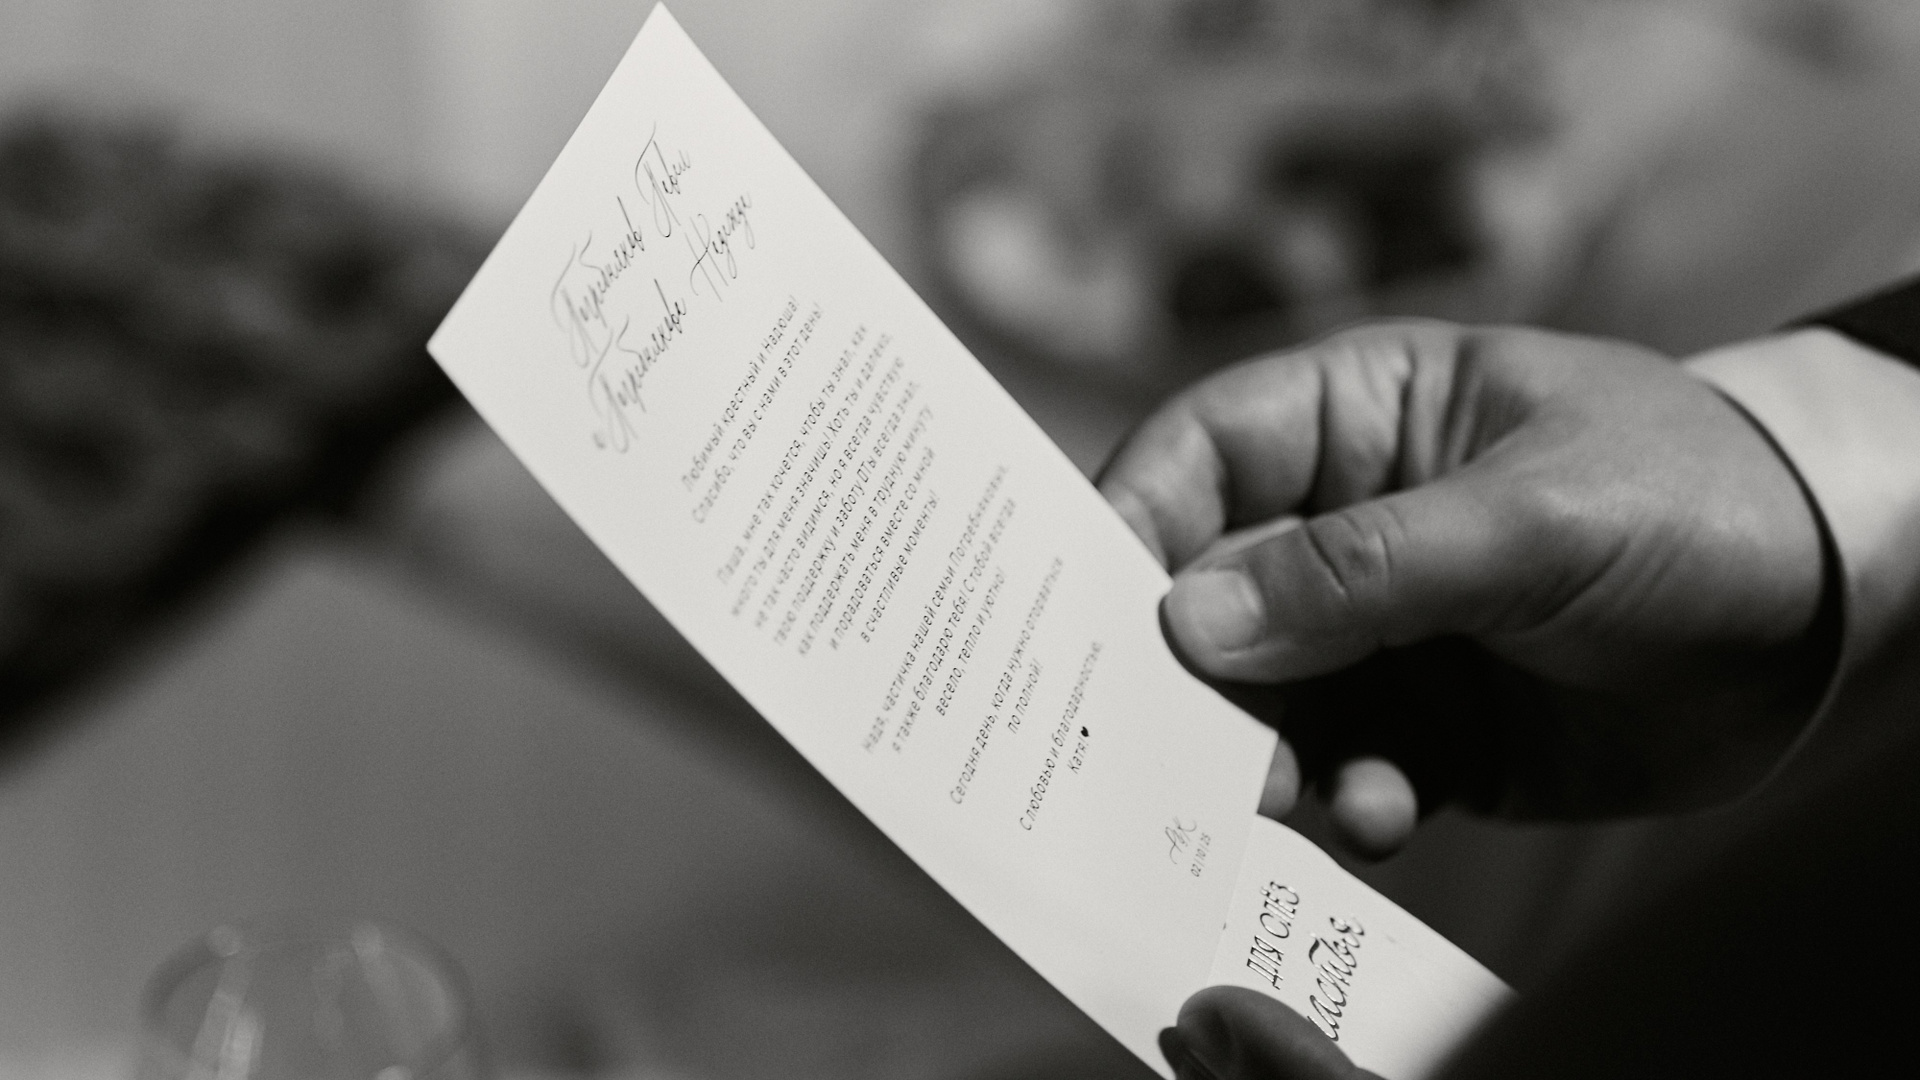 Погребняков Павел
и Погребнякова Надежда
Любимый крестный и Надюша!
Спасибо, что вы с нами в этот день!
Паша, мне так хочется, чтобы ты знал, как
много ты для меня значишь! Хоть ты и далеко,
не так часто видимся, но я всегда чувствую
твою поддержку и заботу! Ты всегда знал,
как поддержать меня в трудную минуту
и порадоваться вместе со мной
в счастливые моменты!
Надя, частичка нашей семьи Погребняковых,
я также благодарю тебя! С тобой всегда
весело, тепло и уютно!
Сегодня день, когда нужно оторваться
по полной!
С любовью и благодарностью,
Катя!♥
02|10|25
ДЛЯ СЛЁЗ
счастья